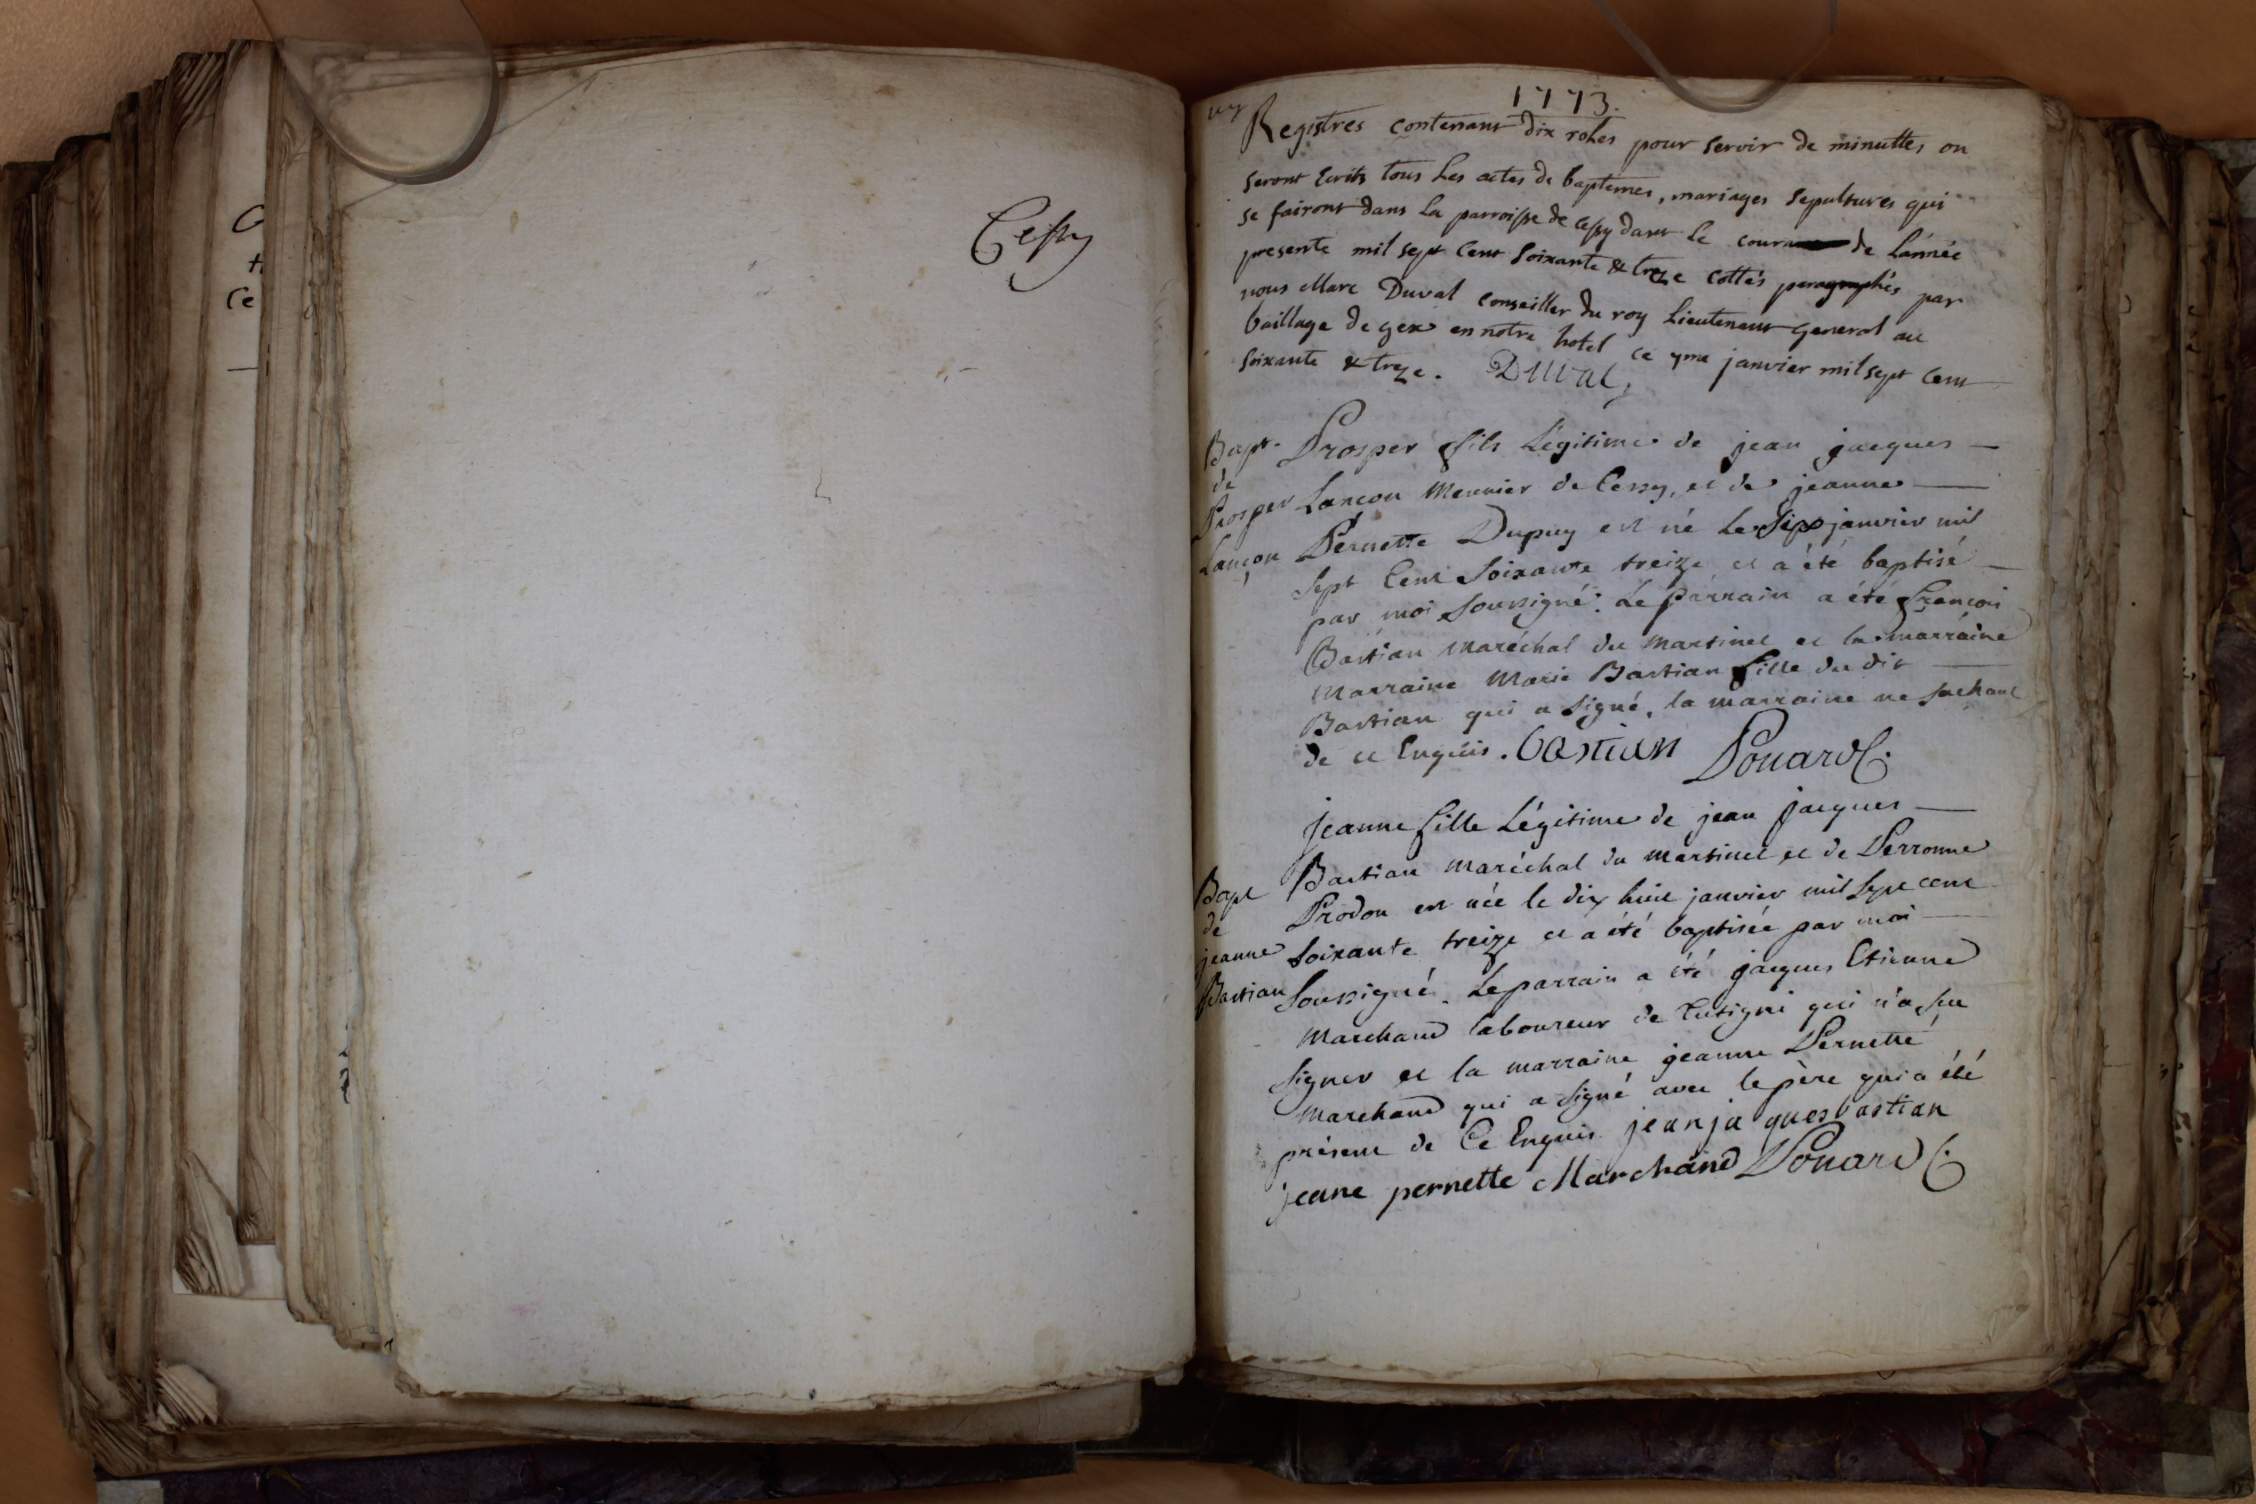 Cessy
1773.
Registres contenant dix roles pour servir de minuttes ou
seront Ecrits tous Les actes de baptemes, mariages sepultures qui
se fairont dans La parroisse de cessy dans Le coura de L'année
presente mil sept Cent soixante & treze cottés paragraphés par
nous Marc Duval Conseiller du roy Lieutenant general au
baillage de gex en notre hotel ce janvier mil sept Cent
soixante & treze. Duval,
Bapt.
de
Prosper
Lançon
Prosper fils Légitime de jean jacques
Lançon Meunier de Cessy, et de jeanne
Pernette Dupuy est né Le Six janvier mil
Sept Cent Soixante treize et a été baptisé
par moi Soussigné. Le parrain a été françois
Bastian maréchal du Martinet et la marraine
Marraine Marie Bastian fille du dit
Bastian qui a signé, la marraine ne sachant
de ce Enquis. bastian Pouard
Bapt
de
jeanne
Bastian
jeanne fille Légitime de jean jacques
Bastian maréchal du martinet et de Perronne
Prodon est née le dix huit janvier mil sept cent
Soixante treize et a été baptisée par moi
Soussigné. Le parrain a été jacques Etienne
Marchand laboureur de Tutigni qui n'a su
signer et la marraine jeanne Pernette
Marchand qui a signé avec le père qui a été
présent de Ce Enquis jean jaques bastian
jeane pernette Marchand Pouard